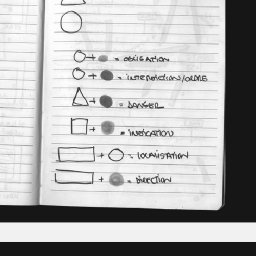 + = OBLIGATION
+ = INTERDICTION/ORDRE
+ = DANGER
+ = INDICATION
+ = LOCALISATION
+ = DIRECTION